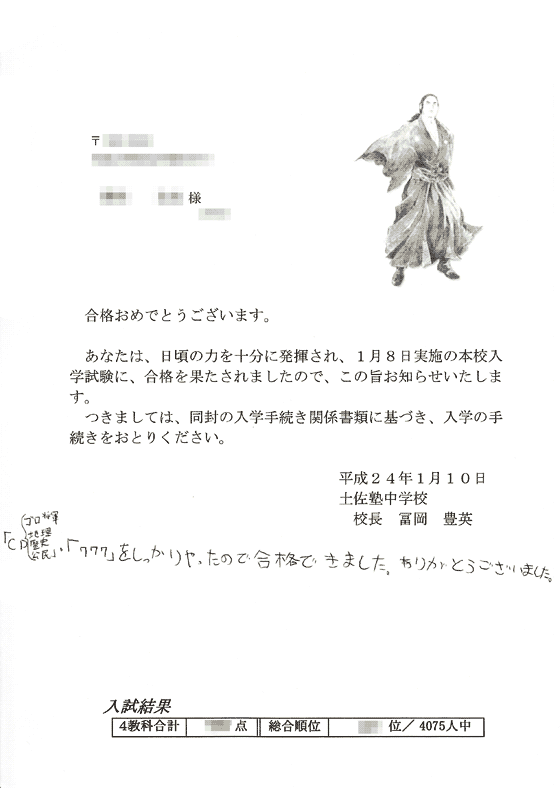 〒
様
合格おめでとうございます。
あなたは、日頃の力を十分に発揮され、1月8日実施の本校入
学試験に、合格を果たされましたので、この旨お知らせいたしま
す。
つきましては、同封の入学手続き関係書類に基づき、入学の手
続きをおとりください。
平成24年1月10日
土佐塾中学校
校長 冨岡 豊英
ゴロ将軍
地理
歴史
公民
「CD」・「777」をしっかりやったので合格できました。ありがとうございました。
入試結果
4教科合計 点 総合順位 位/4075人中